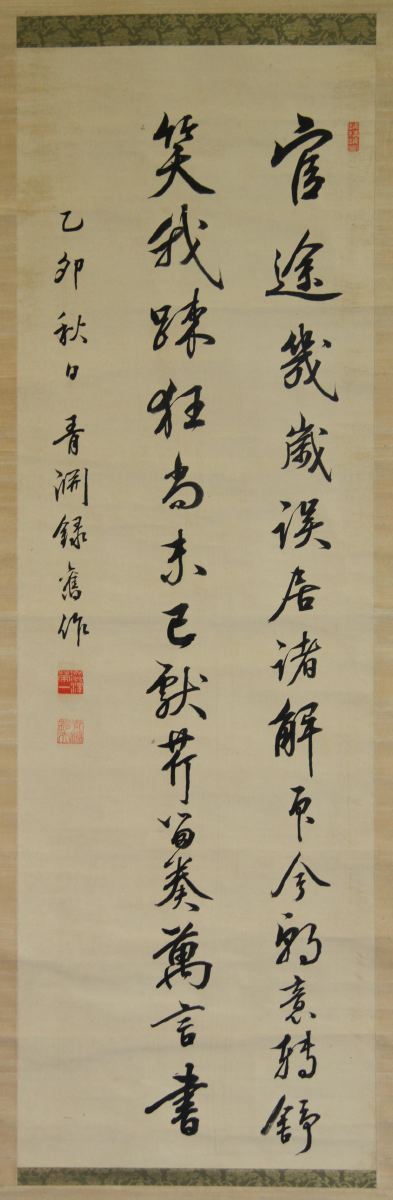 官途幾歳誤居諸解印今朝意轉舒
笑我踈狂尚未已獻芹留奏萬言書
乙卯秋日 青淵録舊作